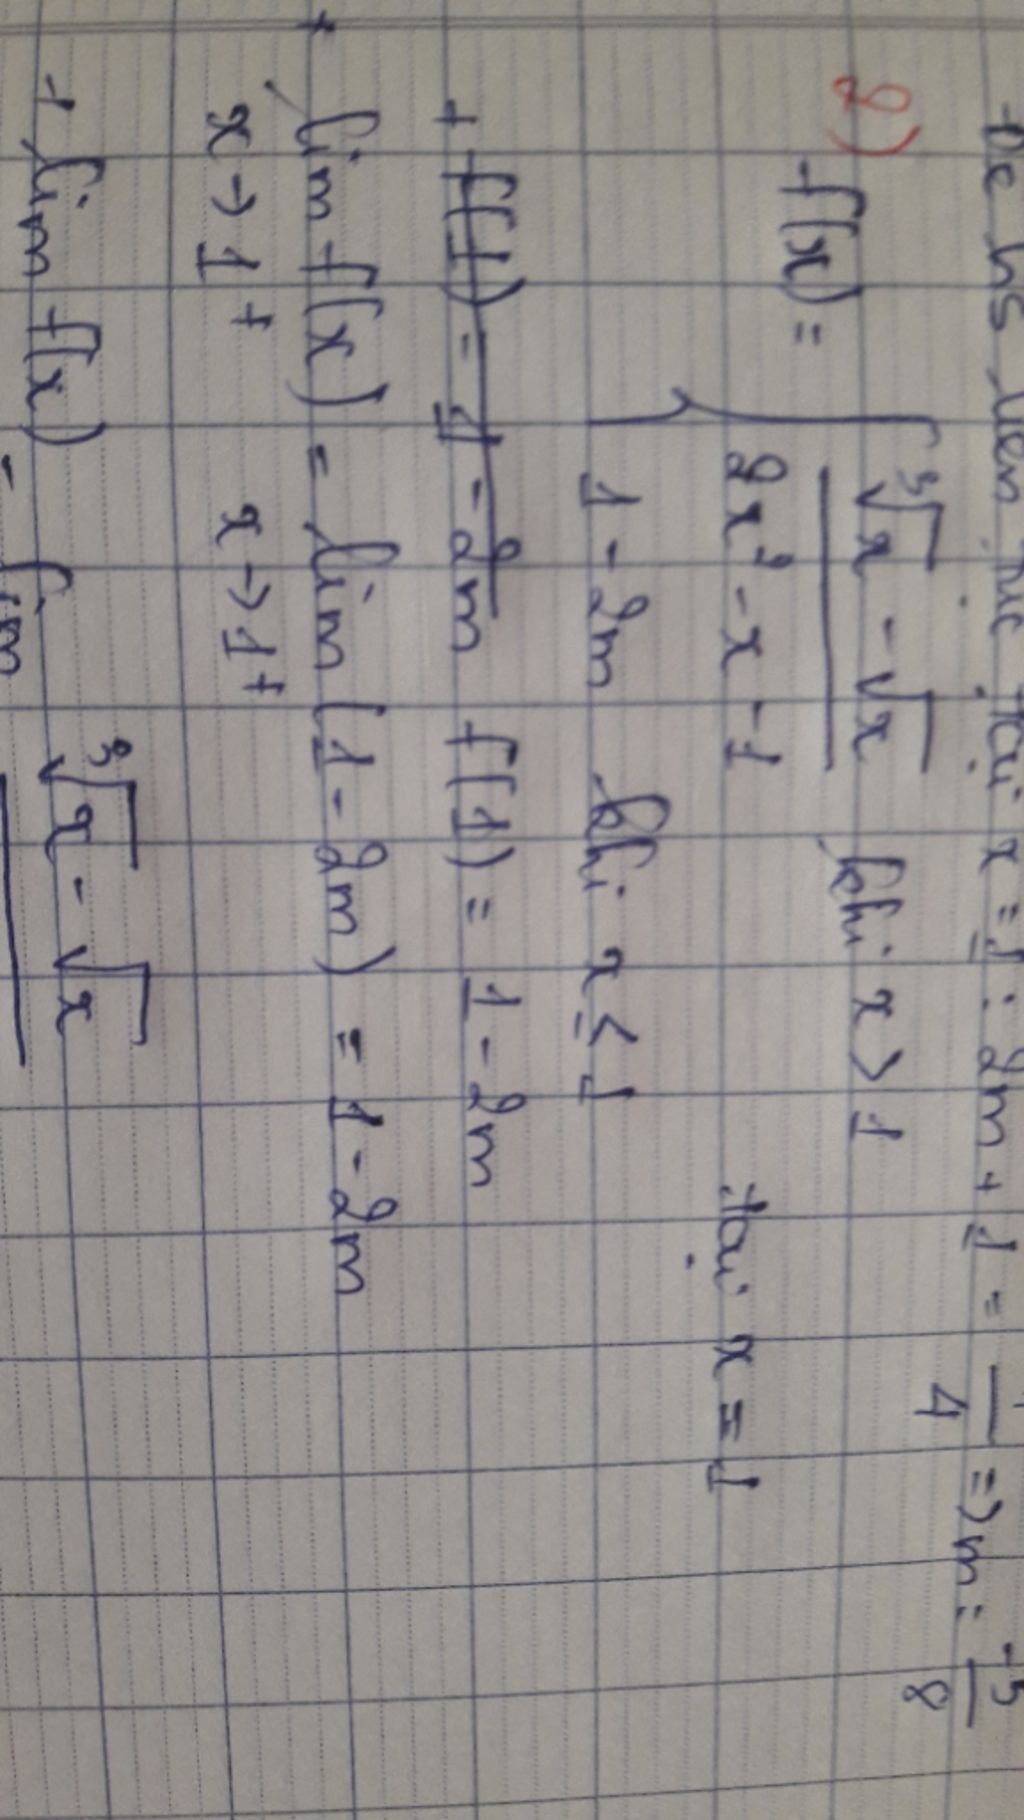 Để hs liên tục tại x = 1 : 2m + 1 = -1/4 => m = -5/8
2) f(x) = { (∛x - √x)/(2x² - x - 1) khi x > 1
1 - 2m khi x ≤ 1
tại x = 1
+ f(1) = 1 - 2m f(1) = 1 - 2m
+ lim f(x) = lim (1 - 2m) = 1 - 2m
x → 1⁺ x → 1⁺
+ lim f(x) = lim ∛x - √x